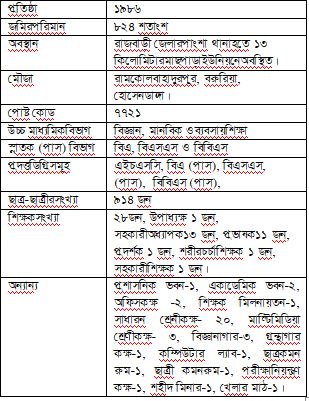 প্রতিষ্ঠা ১৯৮৬
জমিরপরিমান ৮২৪ শতাংশ
অবস্থান রাজবাড়ী জেলারপাংশা থানাহতে ১৩
কিলোমিটারমাছপাড়াইউনিয়নেঅবস্থিত।
মৌজা রামকোলবাহাদুরপুর, বরুরিয়া,
হোসেনডাঙ্গা।
পোষ্ট কোড ৭৭২১
উচ্চ মাধ্যমিকবিভাগ বিজ্ঞান, মানবিক ওব্যবসায়শিক্ষা
স্নাতক (পাস) বিভাগ বিএ, বিএসএস ও বিবিএস
প্রদত্তডিগ্রিসমূহ এইচএসসি, বিএ (পাস), বিএসএস,
(পাস), বিবিএস (পাস),
ছাত্র-ছাত্রীরসংখ্যা ৯১৪ জন
শিক্ষকসংখ্যা ২৮জন, উপাধ্যক্ষ ১ জন,
সহকারীঅধ্যাপক১৩ জন, প্রভাষক১১ জন,
প্রদর্শক ১ জন, শরীরচর্চাশিক্ষক ১ জন,
সহকারীশিক্ষক ১ জন।
অন্যান্য প্রশাসনিক ভবন-১, একাডেমিক ভবন-২,
অফিসকক্ষ -২, শিক্ষক মিলনায়তন-১,
সাধারন শ্রেনীকক্ষ- ২০, মাল্টিমিডিয়া
শ্রেনীকক্ষ- ৩, বিজ্ঞানাগার-৩, গ্রন্থাগার
কক্ষ-১, কম্পিউটার ল্যাব-১, ছাত্রকমন
রুম-১, ছাত্রী কমনরুম-১, পরীক্ষানিয়ন্ত্রণ
কক্ষ-১, শহীদ মিনার-১, খেলার মাঠ-১।